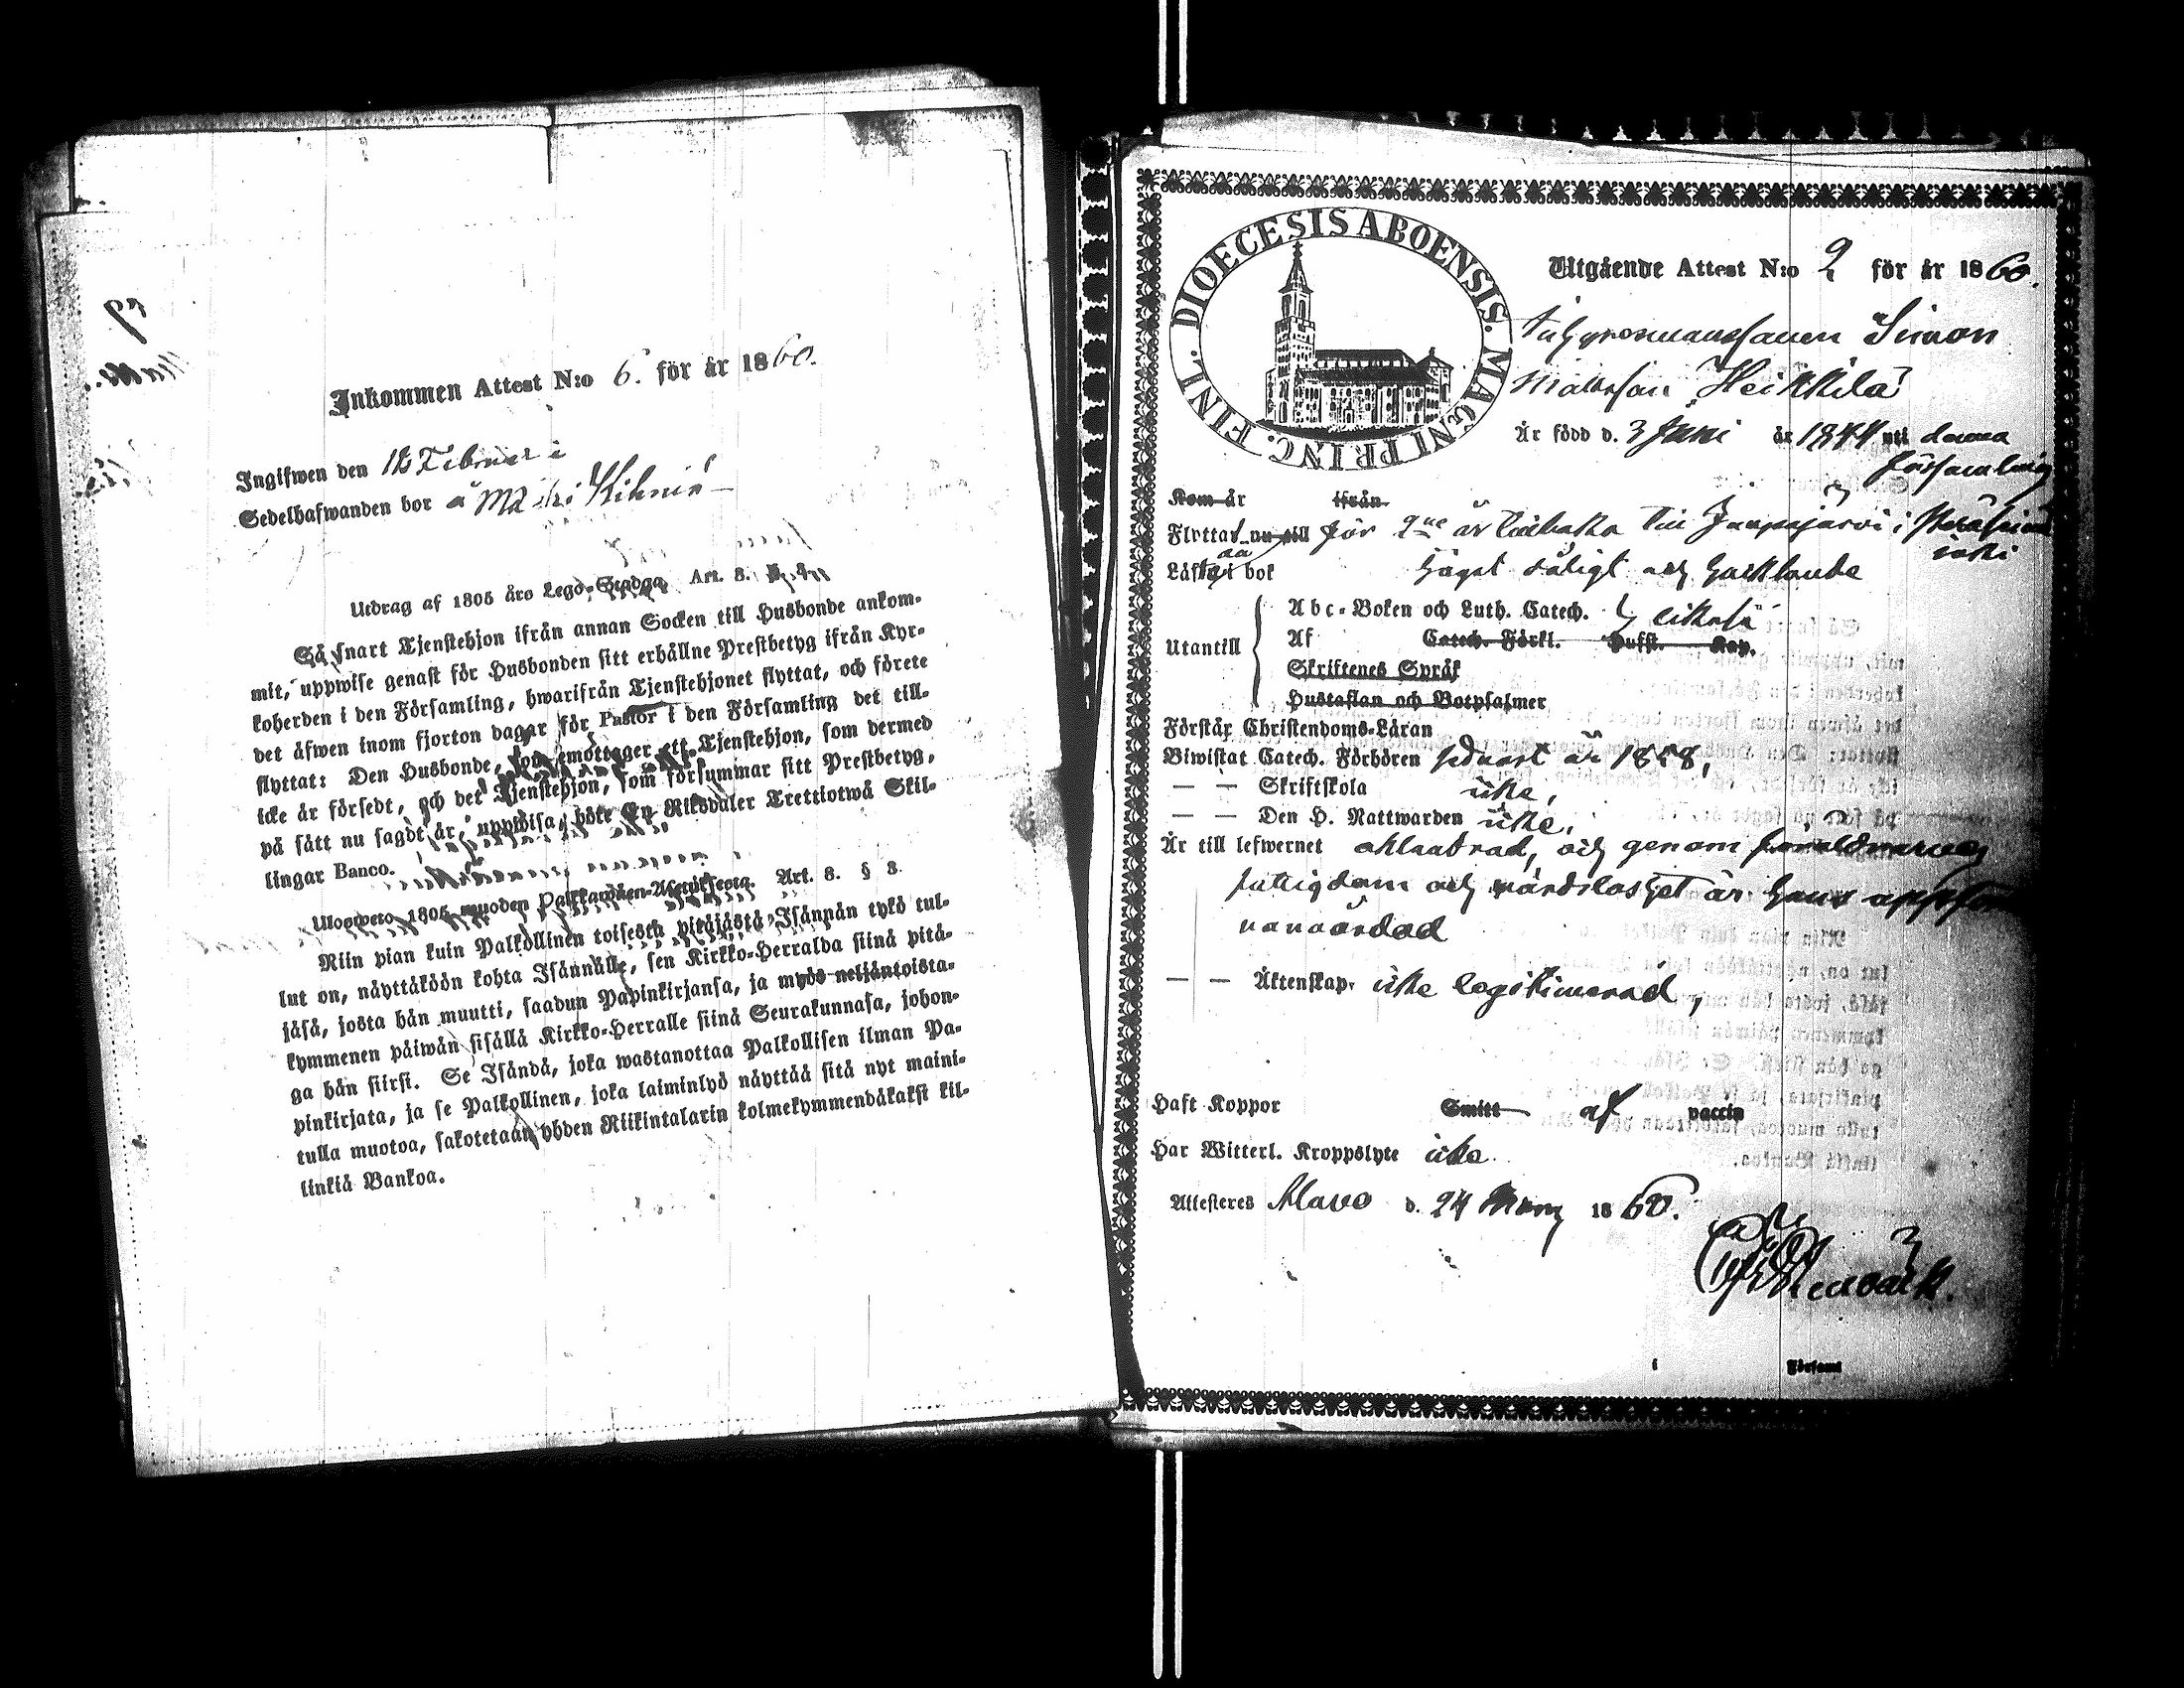 Inkommen Attest N:o 6. för år 1860.
Ingifwen den 12 Februari
Sedelhafwanden bor å Mäki Kihniä
Utdrag af 1805 års Lego-Stadga. Art. 8. § 8.
Så snart Tjenstehjon ifrån annan Socken till Husbonde ankom-
mit, uppwise genast för Husbonden sitt erhållne Prestbetyg ifrån Kyr-
koherden i den Församling, hwarifrån Tjenstehjonet flyttat, och förete
det äfwen inom fjorton dagar för Pastor i den Församling det till-
flyttat: Den Husbonde, som emottager ett Tjenstehjon, som dermed
icke är försedt, och det Tjenstehjon, som försummar sitt Prestbetyg,
på sätt nu sagdt är, uppwisa, böte En Riksdaler Trettiotwå Skil-
lingar Banco.
Ulosweto 1805 wuoden Palkkawäen-Asetuksesta. Art. 8. § 8.
Niin pian kuin Palkollinen toisesta pitäjästä Isännän tykö tul-
lut on, näyttäköön kohta Isännälle, sen Kirkko-Herralda siinä pitä-
jäsä, josta hän muutti, saadun Papinkirjansa, ja myös neljäntoista-
kymmenen päiwän sisällä Kirkko-Herralle siinä Seurakunnasa, johon-
ga hän siirsi. Se Isändä, joka wastanottaa Palkollisen ilman Pa-
pinkirjata, ja se Palkollinen, joka laiminlyö näyttää sitä nyt maini-
tulla muotoa, sakotetaan yhden Riikintalarin kolmekymmendäkaksi kil-
linkiä Bankoa.
DIOECESIS ABOENSIS. MAGNI PRINC. FINL.
Utgående Attest N:o 2 för år 1860.
Simon
Mattsson Heikkilä
Är född d. 3 Juni år 1844 uti denna
församling
Kom år ifrån
Flyttat nu till för är tillbaka till i
Läste i bok högst dåligt och hacklande
Utantill
Abc-Boken och Luth. Catech.
Af Catech. Förkl. Hufst. Kap.
Skriftenes Språk
Hustaflan och Botpsalmer
Förstår Christendoms-Läran
Biwistat Catech. Förhören senast år 1858,
— — Skriftskola icke,
— — Den H. Nattwarden icke,
Är till lefwernet oklandrad, och genom
fattigdom och vårdslöshet är hans
— — Äktenskap. icke legitimerad,
Haft Koppor Smitt af vaccin
Har Witterl. Kroppslyte icke
Attesteras Alavo d. 24 Mars 1860.
i Församl